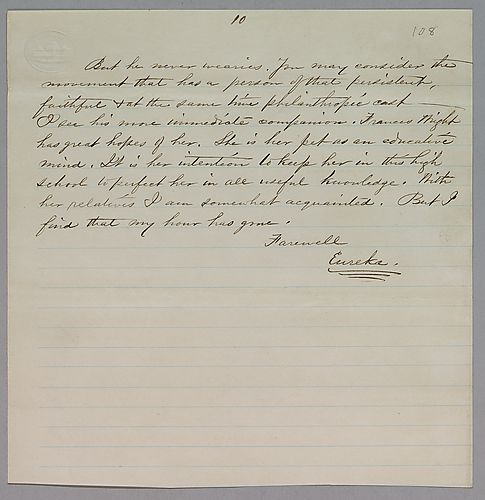 10
108
But he never wearies. You may consider the
movement that has a person of that persistent,
faithful & at the same time philanthropic cast
I see his more immediate companion. Frances Wright
has great hopes of her. She is her pet as an educative
mind. It is her intention to keep her in this high
school to perfect her in all useful knowledge. With
her relatives I am somewhat acquainted. But I
find that my hour has gone.
Farewell
Eureka.